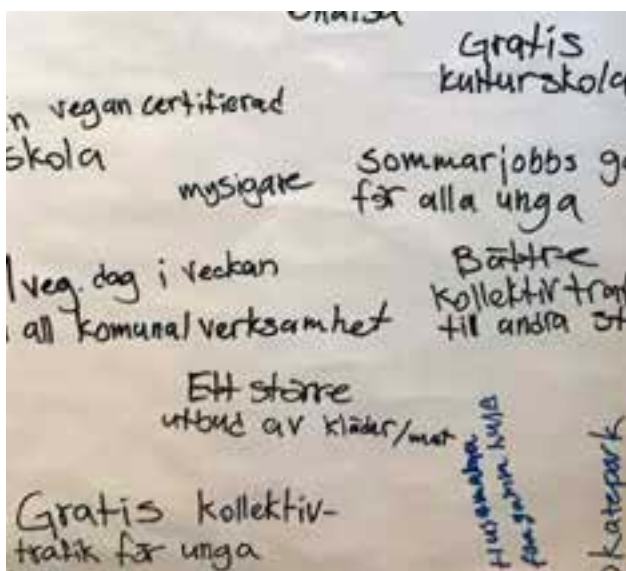 Gratis
kulturskola
n vegan certifierad
skola
mysigare
sommarjobbs ga
för alla unga
1 veg. dag i veckan
i all komunal verksamhet
Bättre
kollektiv traf
till andra st
Ett större
utbud av kläder/mat
Gratis kollektiv-
trafik för unga
skatepark